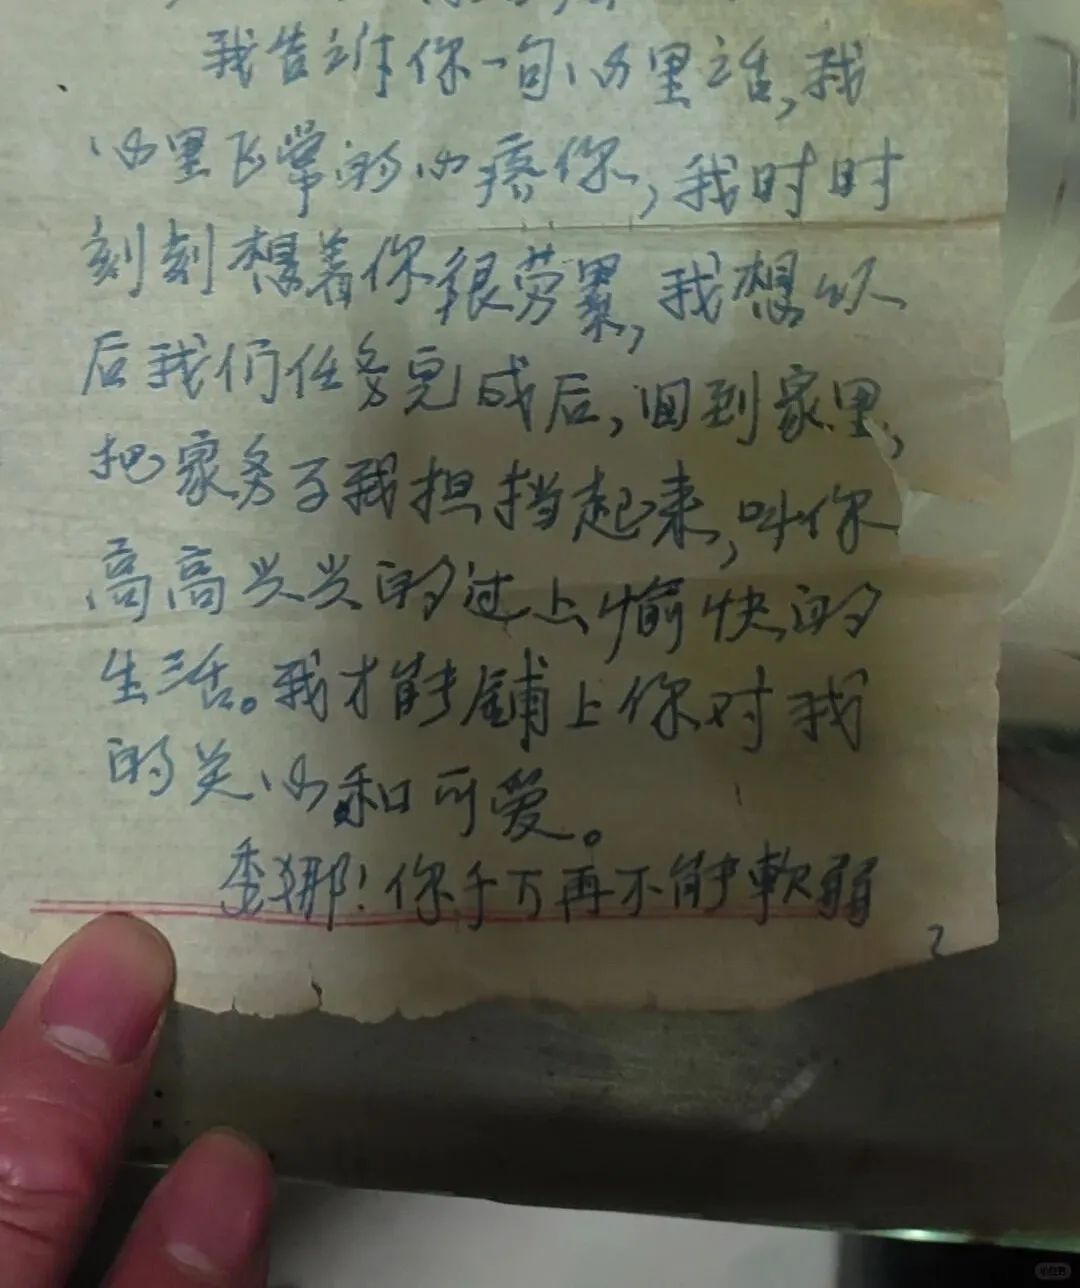 我告诉你一句心里话,我
心里飞常的心疼你,我时时
刻刻想着你很劳累,我想以
后我们任务完成后,回到家里,
把家务子我担挡起来,叫你
高高兴兴的过上愉快的
生活。我才能铺上你对我
的关心和可爱。
季娜!你千万再不能軟弱
2
小红书